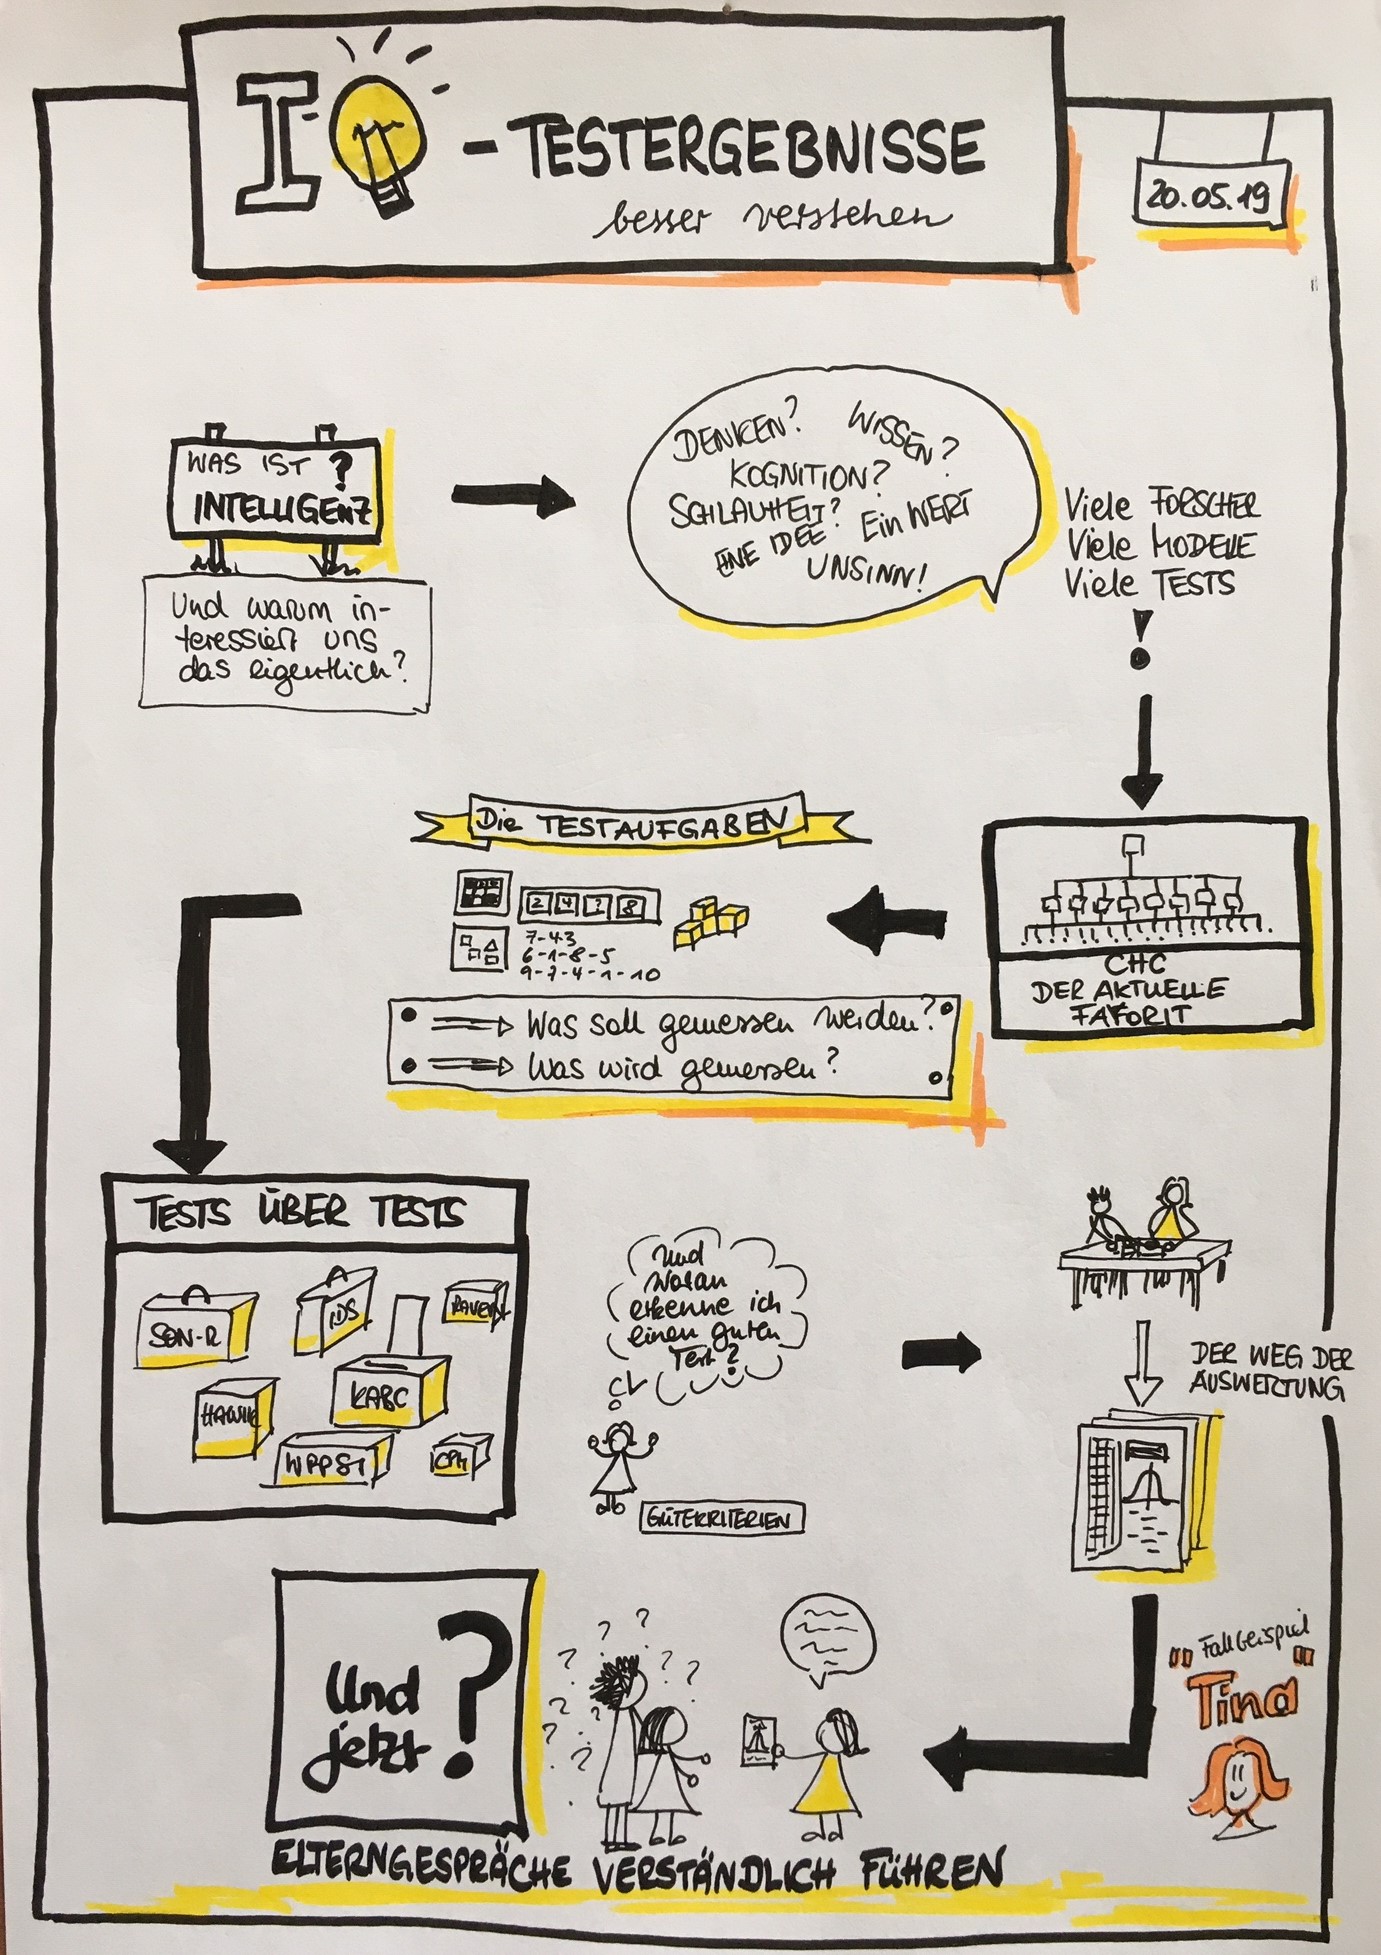 IQ-TESTERGEBNISSE
besser verstehen
20.05.19
WAS IST ?
INTELLIGENZ
Und warum in-
teressiert uns
das eigentlich?
DENKEN? WISSEN?
KOGNITION?
SCHLAUHEIT? Ein WERT
EINE IDEE
UNSINN!
Viele FORSCHER
Viele MODELLE
Viele TESTS
!
CHC
DER AKTUELLE
FAVORIT
Die TESTAUFGABEN
2 4 ? 8
7-43
6-1-8-5
9-7-4-1-10
Was soll gemessen werden?
Was wird gemessen?
TESTS ÜBER TESTS
SON-R
IDS
RAVEN
HAWIK
KABC
WPPSI
CPM
Und
woran
erkenne ich
einen guten
Test?
GÜTEKRITERIEN
DER WEG DER
AUSWERTUNG
"Fallbeispiel"
Tina
Und
jetzt ?
ELTERNGESPRÄCHE VERSTÄNDLICH FÜHREN